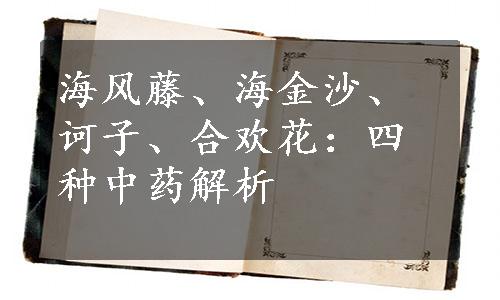 海风藤、海金沙、
诃子、合欢花：四
种中药解析